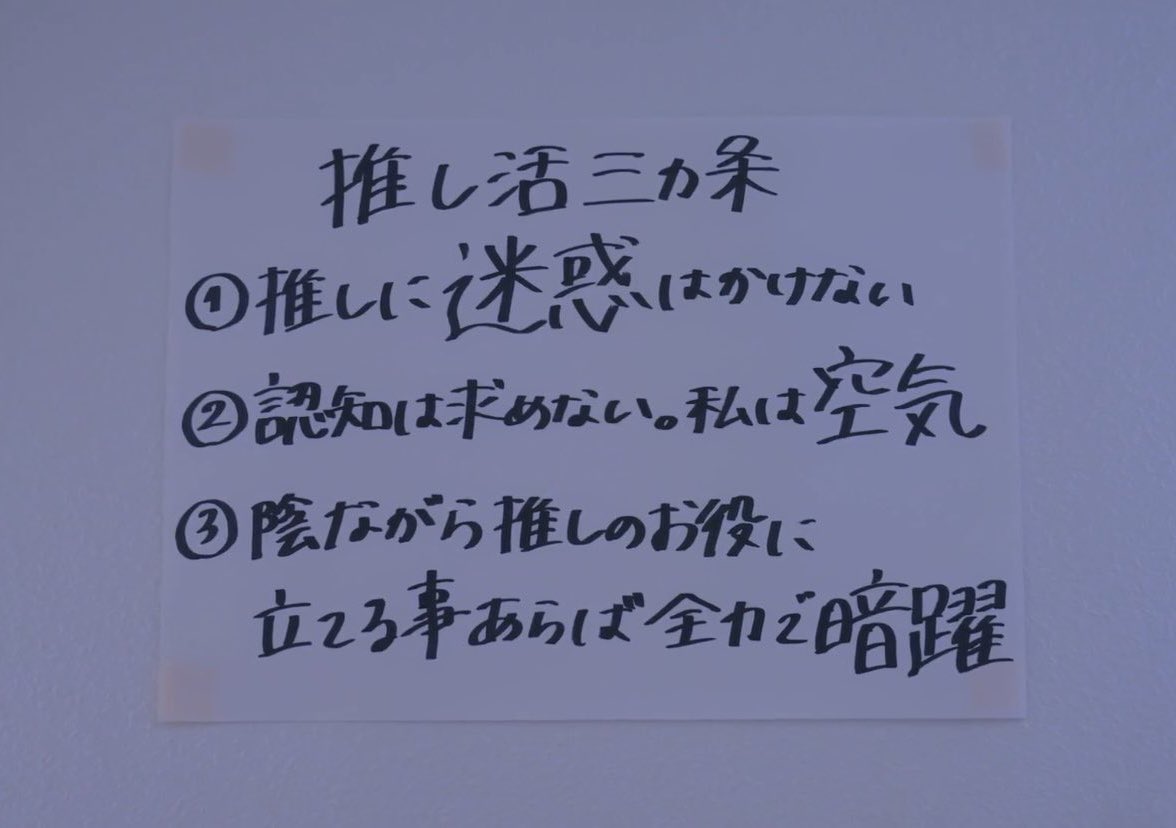 推し活三カ条
①推しに迷惑はかけない
②認知は求めない。私は空気
③陰ながら推しのお役に
立てる事あらば全力で暗躍